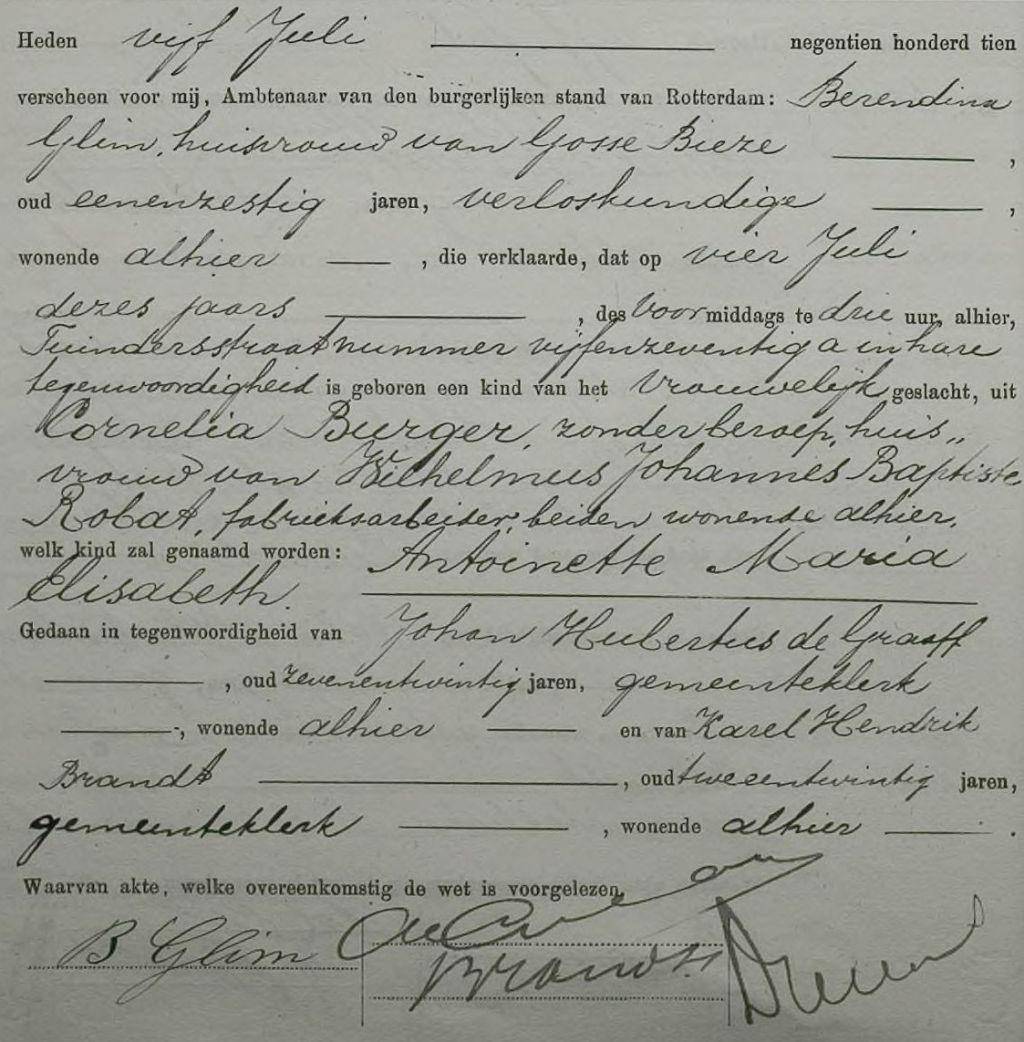 Heden vijf Juli negentien honderd tien
verscheen voor mij, Ambtenaar van den burgerlijken stand van Rotterdam: Berendina
Glim, huisvrouw van Gosse Bieze ,
oud eenenzestig jaren, verloskundige ,
wonende alhier , die verklaarde, dat op vier Juli
dezes jaars , des voormiddags te drie uur, alhier,
Tuindersstraat nummer vijfenzeventig a in hare
tegenwoordigheid is geboren een kind van het vrouwelijk geslacht, uit
Cornelia Burger, zonder beroep, huis„
vrouw van Wilhelmus Johannes Baptiste
Robat, fabrieksarbeider, beiden wonende alhier,
welk kind zal genaamd worden: Antoinette Maria
Elisabeth.
Gedaan in tegenwoordigheid van Johan Hubertus de Graaff
, oud zevenentwintig jaren, gemeenteklerk
, wonende alhier en van Karel Hendrik
Brandt , oud tweeentwintig jaren,
gemeenteklerk , wonende alhier .
Waarvan akte, welke overeenkomstig de wet is voorgelezen.
B Glim
Brandt